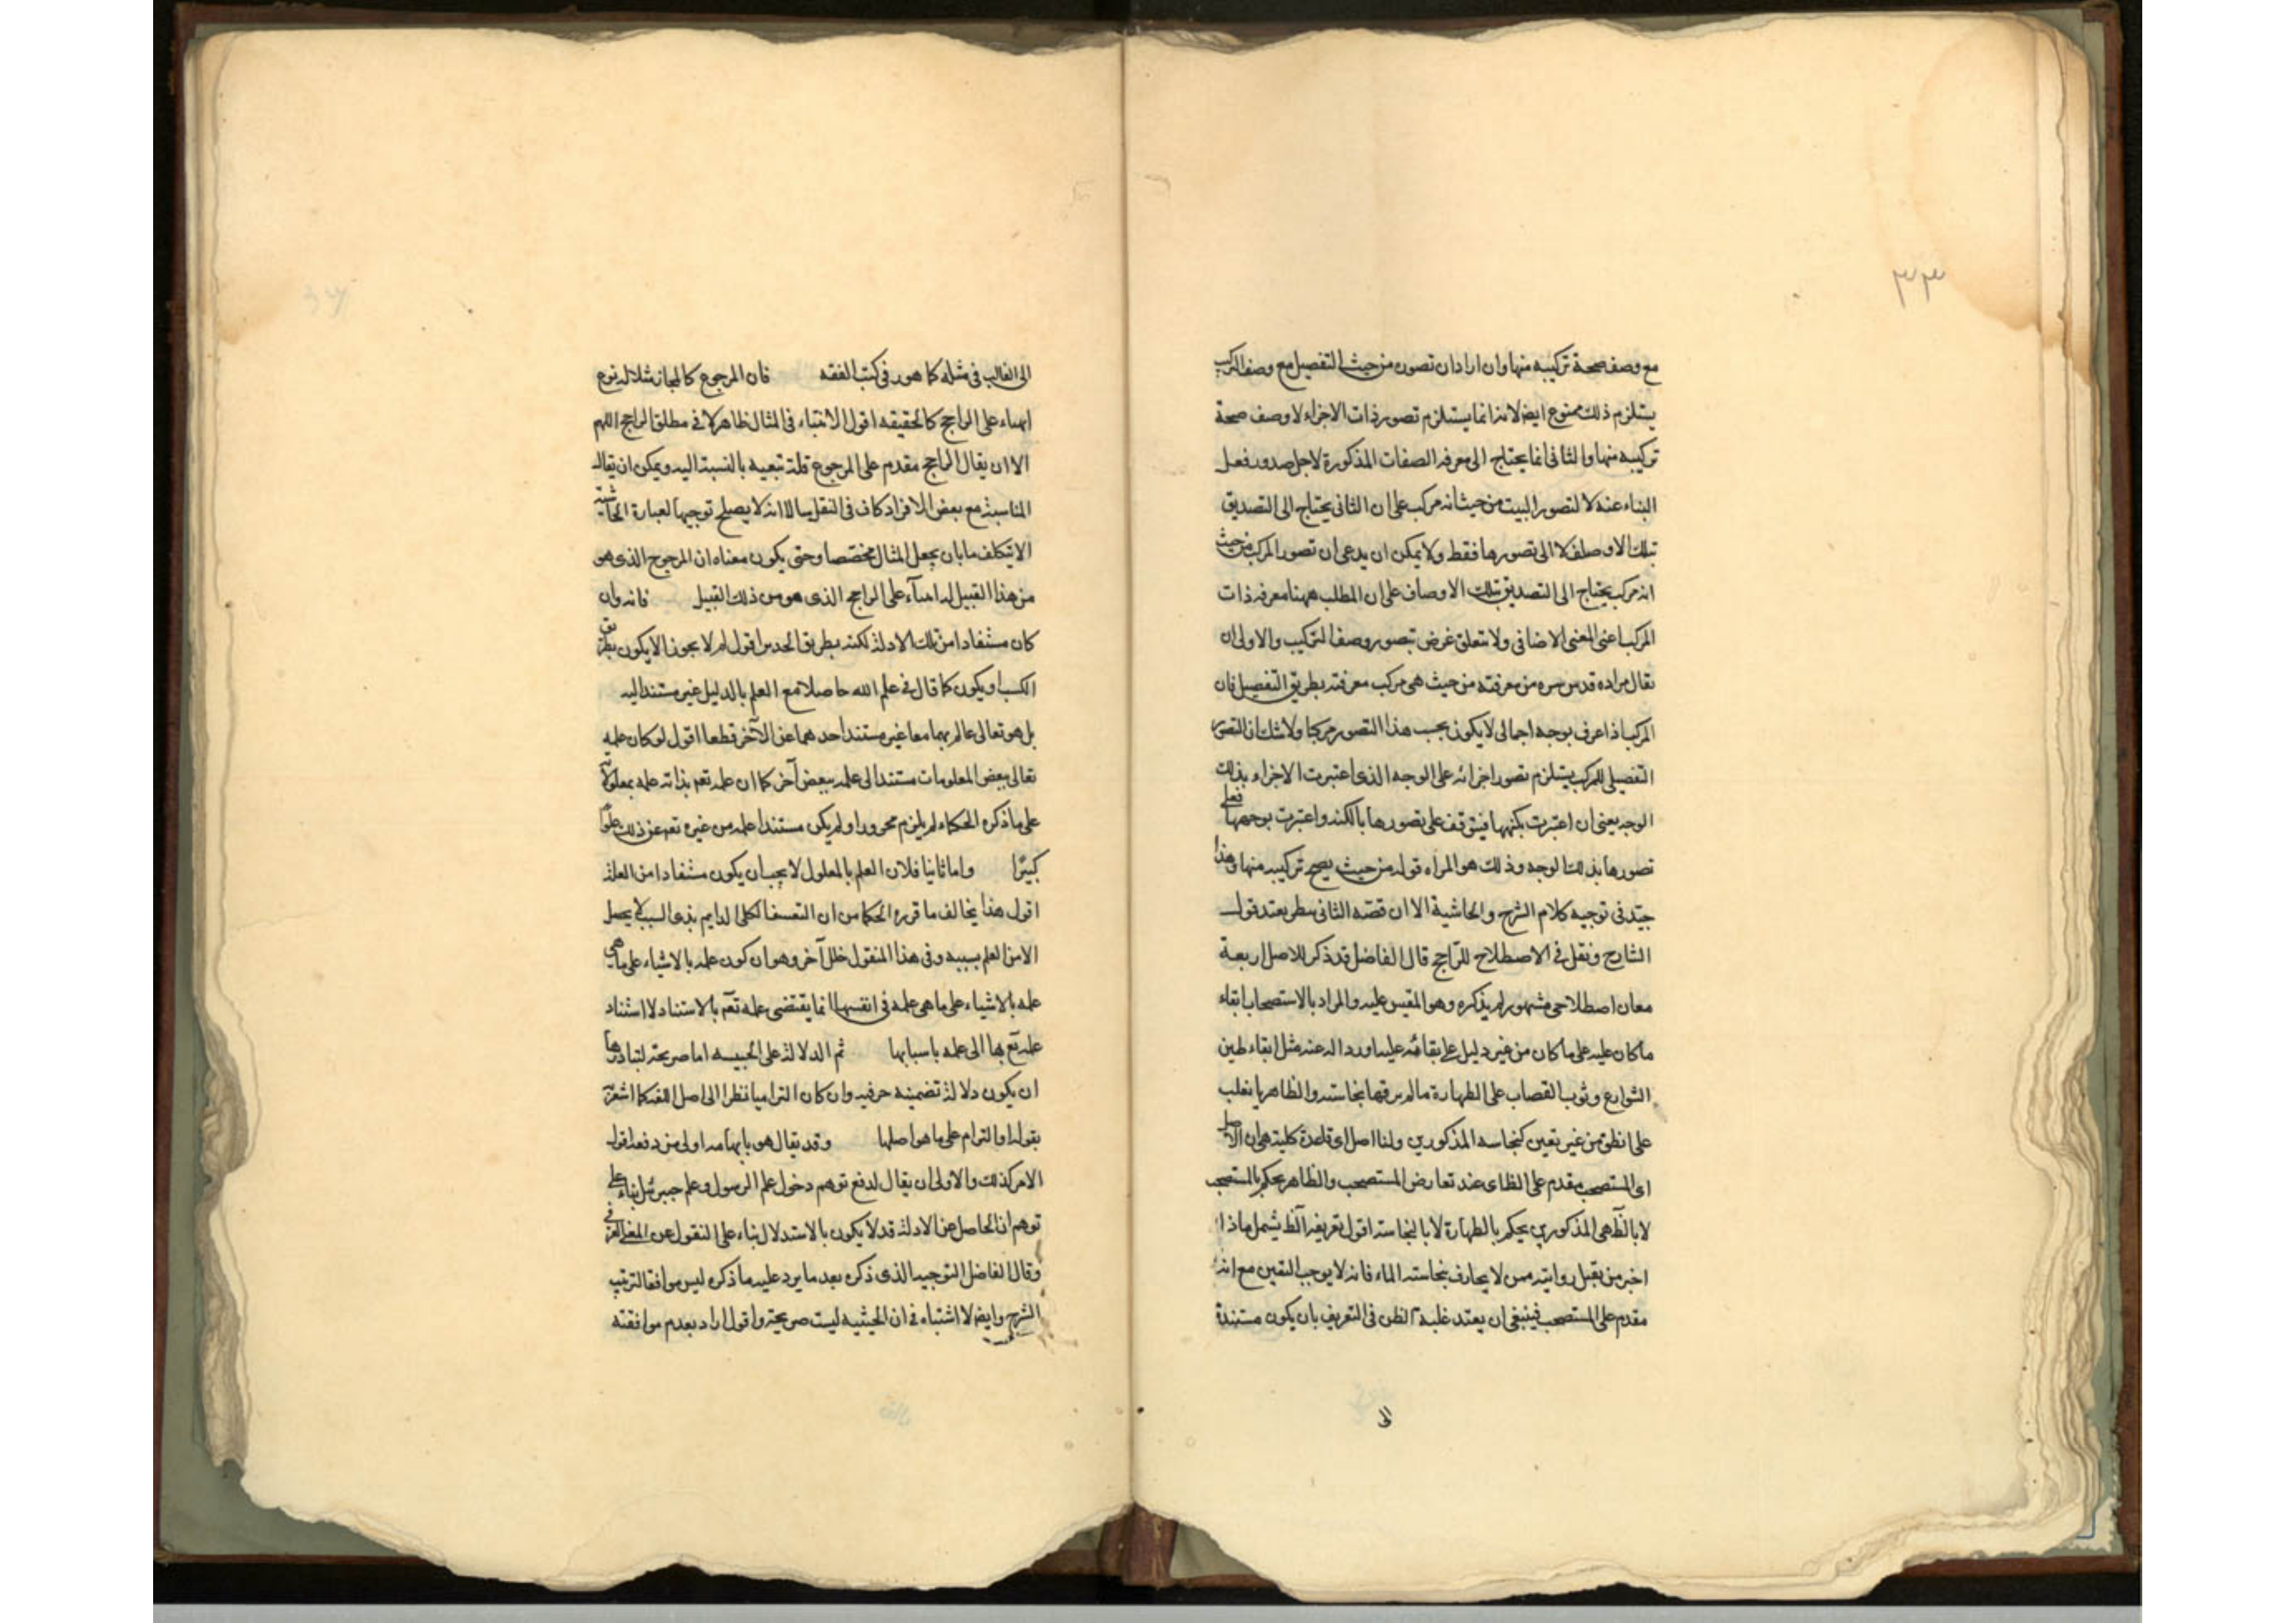 ٣٣
مع وصف صحة تركيبه منها وان اراد ان تصوره من حيث التفصيل مع وصف التركيب
يستلزم ذلك ممنوع ايضا لانه انما يستلزم تصور ذات الاجزاء لا وصف صحة
تركيبه منها والثانى انما يحتاج الى معرفة الصفات المذكورة لاجل صدور فعل
البناء عنه لا لتصور البيت من حيث انه مركب على ان الثانى يحتاج الى التصديق
بتلك الاوصاف لا الى تصورها فقط ولا يمكن ان يدعى ان تصور المركب من حيث
انه مركب يحتاج الى التصديق بتلك الاوصاف على ان المطلب ههنا معرفه ذات
المركب اعنى المعنى الاضافى ولا يتعلق غرض بتصور وصف التركيب والاولى ان
يقال مراده قدس سره من معرفته من حيث هى مركب معرفته بطريق التفصيل فان
المركب اذا عرف بوجه اجمالى لا يكون بحسب هذا التصور مركبا ولا شك ان التصور
التفصيلى للمركب يستلزم تصور اجزائه على الوجه الذى اعتبرت الاجزاء بذلك
الوجه يعنى ان اعتبرت بكنهها فيتوقف على تصورها بالكنه واعتبرت بوجهها فعلى
تصورها بذلك الوجه وذلك هو المراد قوله من حيث يصح تركيبه منها وهذا
جيد فى توجيه كلام الشرح والحاشية الا ان قصه الثانى بعد قول
الشارح ونقل فى الاصطلاح للراجح قال الفاضل قد ذكر للاصل اربعة
معان اصطلاحى مشهور لم يذكره وهو المقيس عليه والمراد بالاستصحاب ابقاء
ما كان عليه على ما كان من غير دليل على بقائه عليه اورد اله عنه مثل ابقاء طين
الشوارع وثوب القصاب على الطهارة مالم بنجاسته والظاهر ما يغلب
على الظن من غير تعين كنجاسه المذكورين ولنا اصل اى قاعدة كلية هى ان الاصل
اى المستصحب مقدم على الظاى عند تعارض المستصحب والظاهر يحكم بالمستصحب
لا بالظ هى المذكورين يحكم بالطهارة لا بالنجاسة اقول تعريف الظ يشمل ما اذا
اخبر من يقبل روايته بنجاسته الماء فانه لا يوجب اليقين مع انه
مقدم على المستصحب فينبغى ان يعتد غلبة الظن فى التعريف بان يكون مستندة
الى
الى الغالب فى مثله كما هو فى كتب الفقه فان المرجوح كالمجاز مثلا له نوع
ابتناء على الراجح كالحقيقه اقول الابتناء فى المثال ظاهر لا فى مطلق الراجح اللهم
الا ان يقال الراجح مقدم على المرجوح بالنسبة اليه ويمكن ان يقال
المناسبة مع بعض الافراد كاف فى النقل الا انه لا يصلح توجيها لعبارة الحاشية
الا بتكلف ما بان يجعل المثال مخصصا وحتى يكون معناه ان المرجوح الذى هو
من هذا القبيل له ابتناء على الراجح الذى هو من ذلك القبيل فانه وان
كان مستفادا من تلك الادلة لكنه بطريق الحدس اقول لم لا يجوز الا يكون بطريق
الكسب او يكون كما قال فى علم الله حاصلا مع العلم بالدليل غير مستند اليه
بل هو تعالى عالم بهما معا غير مستند احدهما عن الآخر قطعا اقول لو كان علمه
تعالى ببعض المعلومات مستندا الى علمه ببعض آخر كما ان علمه تعم بذاته علمه بمعلولاته
على ما ذكره الحكماء لم يلزم محرورا ولم يكن مستندا علمه من غيره تعم عن ذلك علوا
كبيرا واما ثانيا فلان العلم بالمعلول لا يجب ان يكون مستفادا من العلة
اقول هذا يخالف ما قرره الحكما من ان الكلى الدايم بذى السبب لا يحصل
الا من العلم بسببه وفى هذا المنقول خلل آخر وهو ان كون علمه بالاشياء على ما هى
علمه بالاشياء على ما هى علمه فى انفسها انما يقتضى علمه تعم بالاستناد لا استناد
علمه تع بها الى علمه باسبابها ثم الدلالة على الحيثيه اما صريحة لتبادرها
ان يكون دلالة تضمينه حرفيه وان كان التراميا نظرا الى اصل اللغه كما اشعر
بقوله او التزام على ما هو اصلها وقد يقال هو اولى من دفعه اقول
الامر كذلك والاولى ان يقال لدفع توهم دخول علم الرسول وعلم جبرئيل بناء على
توهم ان الحاصل عن الادلة قد لا يكون بالاستدلال بناء على المنقول عن المعنى العرفى
وقال الفاضل التوجيه الذى ذكره بعد ما يرد عليه ما ذكره ليس موافقا لترتيب
الشرح وايضا لا اشتباه فى ان الحيثيه ليست صريحة واقول اراد بعدم موافقته